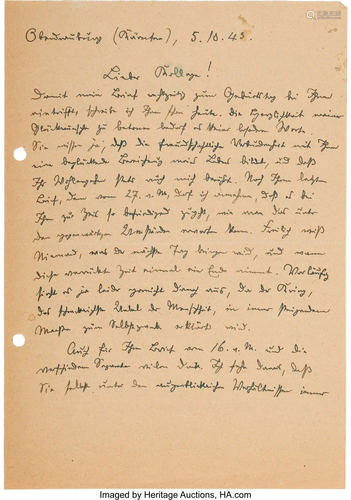 Oberdrauburg (Kärnten), 5.10.43.
Lieber Kollege!
Damit mein Brief rechtzeitig zum Geburtstag bei Ihnen
eintrifft, schreibe ich Ihnen schon heute. Die Herzlichkeit meiner
Glückwünsche zu betonen bedarf es keiner besonderen Worte.
Sie wissen ja, daß die freundschaftliche Verbundenheit mit Ihnen
eine beglückende Bereicherung meines Lebens bildet, und daß
Ihr Wohlergehen stets auch mich berührt. Nach Ihrem letzten
Brief, dem vom 27. v. M. darf ich annehmen, daß es bei
Ihnen zur Zeit so befriedigend zugeht, wie man das unter
den gegenwärtigen Umständen erwarten kann. Freilich weiß
Niemand, was der nächste Tag bringen wird, und wann
diese verrückte Zeit einmal ein Ende nimmt. Vorläufig
sieht es ja leider garnicht danach aus, da der Krieg,
das schrecklichste Übel der Menschheit, in immer steigendem
Masse zum Selbstzweck erklärt wird.
Auch für Ihren Brief vom 16. v. M. und die
verschiedenen Separate vielen Dank. Ich sehe daraus, daß
Sie selbst unter den augenblicklichen Verhältnissen immer
Imaged by Heritage Auctions, HA.com